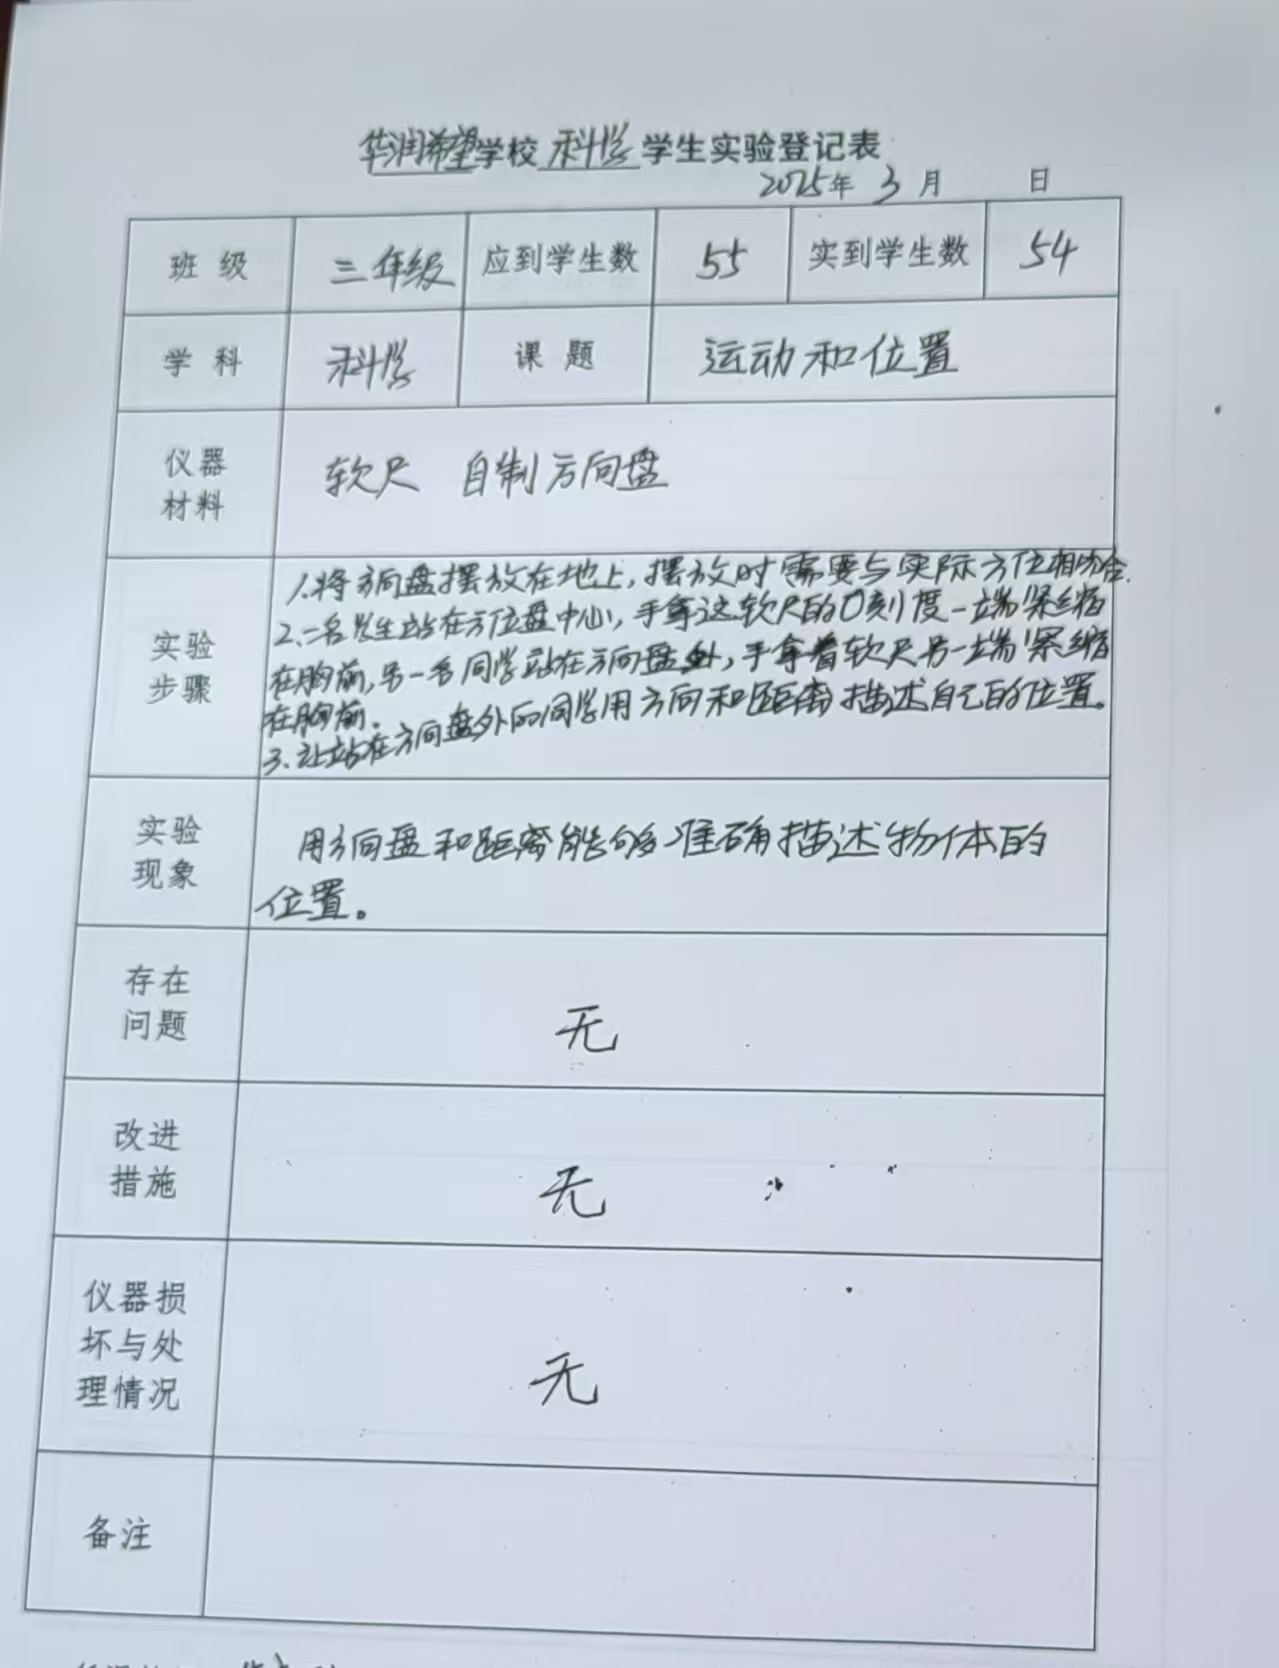 华润希望学校 科学 学生实验登记表
2025年 3 月 日
班 级 三年级 应到学生数 55 实到学生数 54
学 科 科学 课 题 运动和位置
仪器
材料
软尺 自制方向盘
实验
步骤
1.将方向盘摆放在地上,摆放时需要与实际方位相吻合.
2.一名学生站在方位盘中心,手拿这软尺的0刻度一端紧缩
在胸前,另一名同学站在方向盘外,手拿着软尺另一端紧缩
在胸前.
3.让站在方向盘外的同学用方向和距离描述自己的位置。
实验
现象
用方向盘和距离能够准确描述物体的
位置。
存在
问题
无
改进
措施
无
仪器损
坏与处
理情况
无
备注